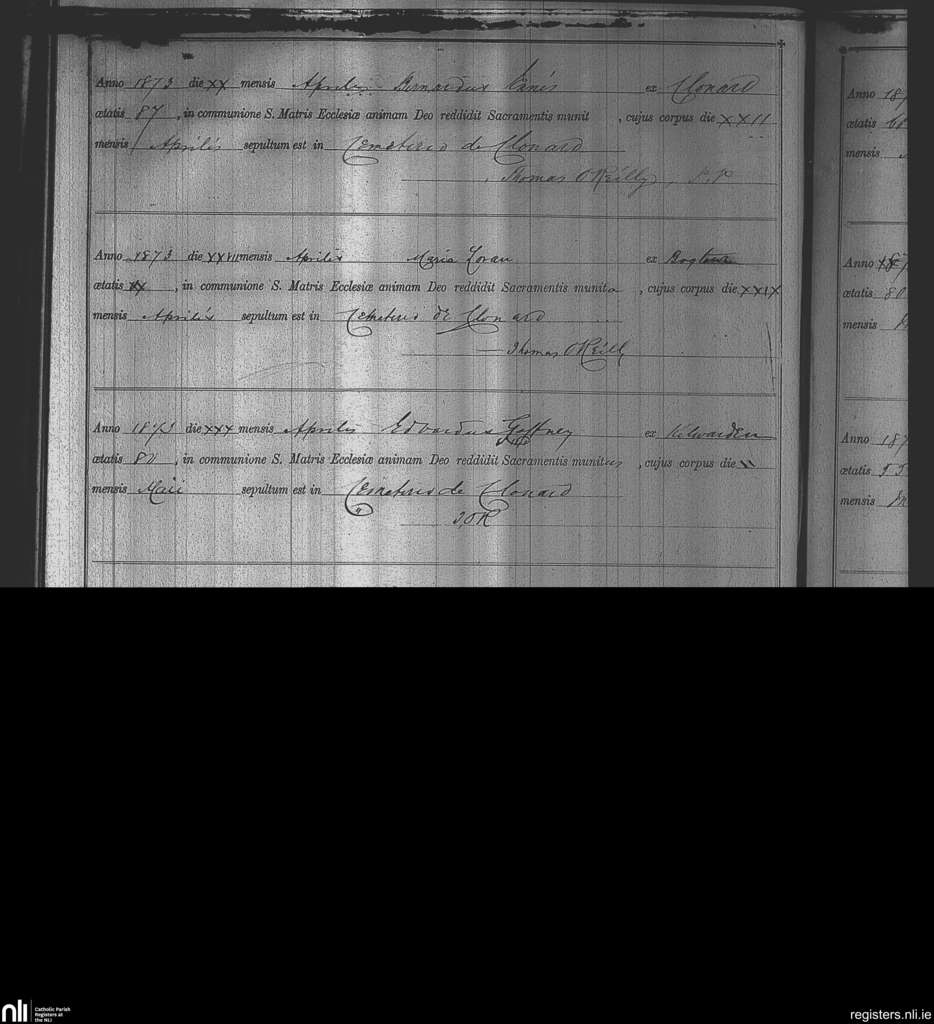 Anno 1873 die XX mensis Aprilis Bernardus ex Clonard
ætatis 87, in communione S. Matris Ecclesiæ animam Deo reddidit Sacramentis munit , cujus corpus die XXII
mensis Aprilis sepultum est in Cemeterio de Clonard
Thomas O'Reilly, P.P
Anno 1873 die XXVII mensis Aprilis Maria ex
ætatis XX, in communione S. Matris Ecclesiæ animam Deo reddidit Sacramentis munita , cujus corpus die XXIX
mensis Aprilis sepultum est in Cemeterio de Clonard
Thomas O'Reilly
Anno 1873 die XXX mensis Aprilis Edvardus Gaffney ex Kilwarden
ætatis , in communione S. Matris Ecclesiæ animam Deo reddidit Sacramentis munitus , cujus corpus die II
mensis Maii sepultum est in Cemeterio de Clonard
T, OR
Anno 187
ætatis 60
mensis
Anno 187
ætatis 80
mensis
Anno 187
ætatis
mensis
nli Catholic Parish Registers at the NLI
registers.nli.ie